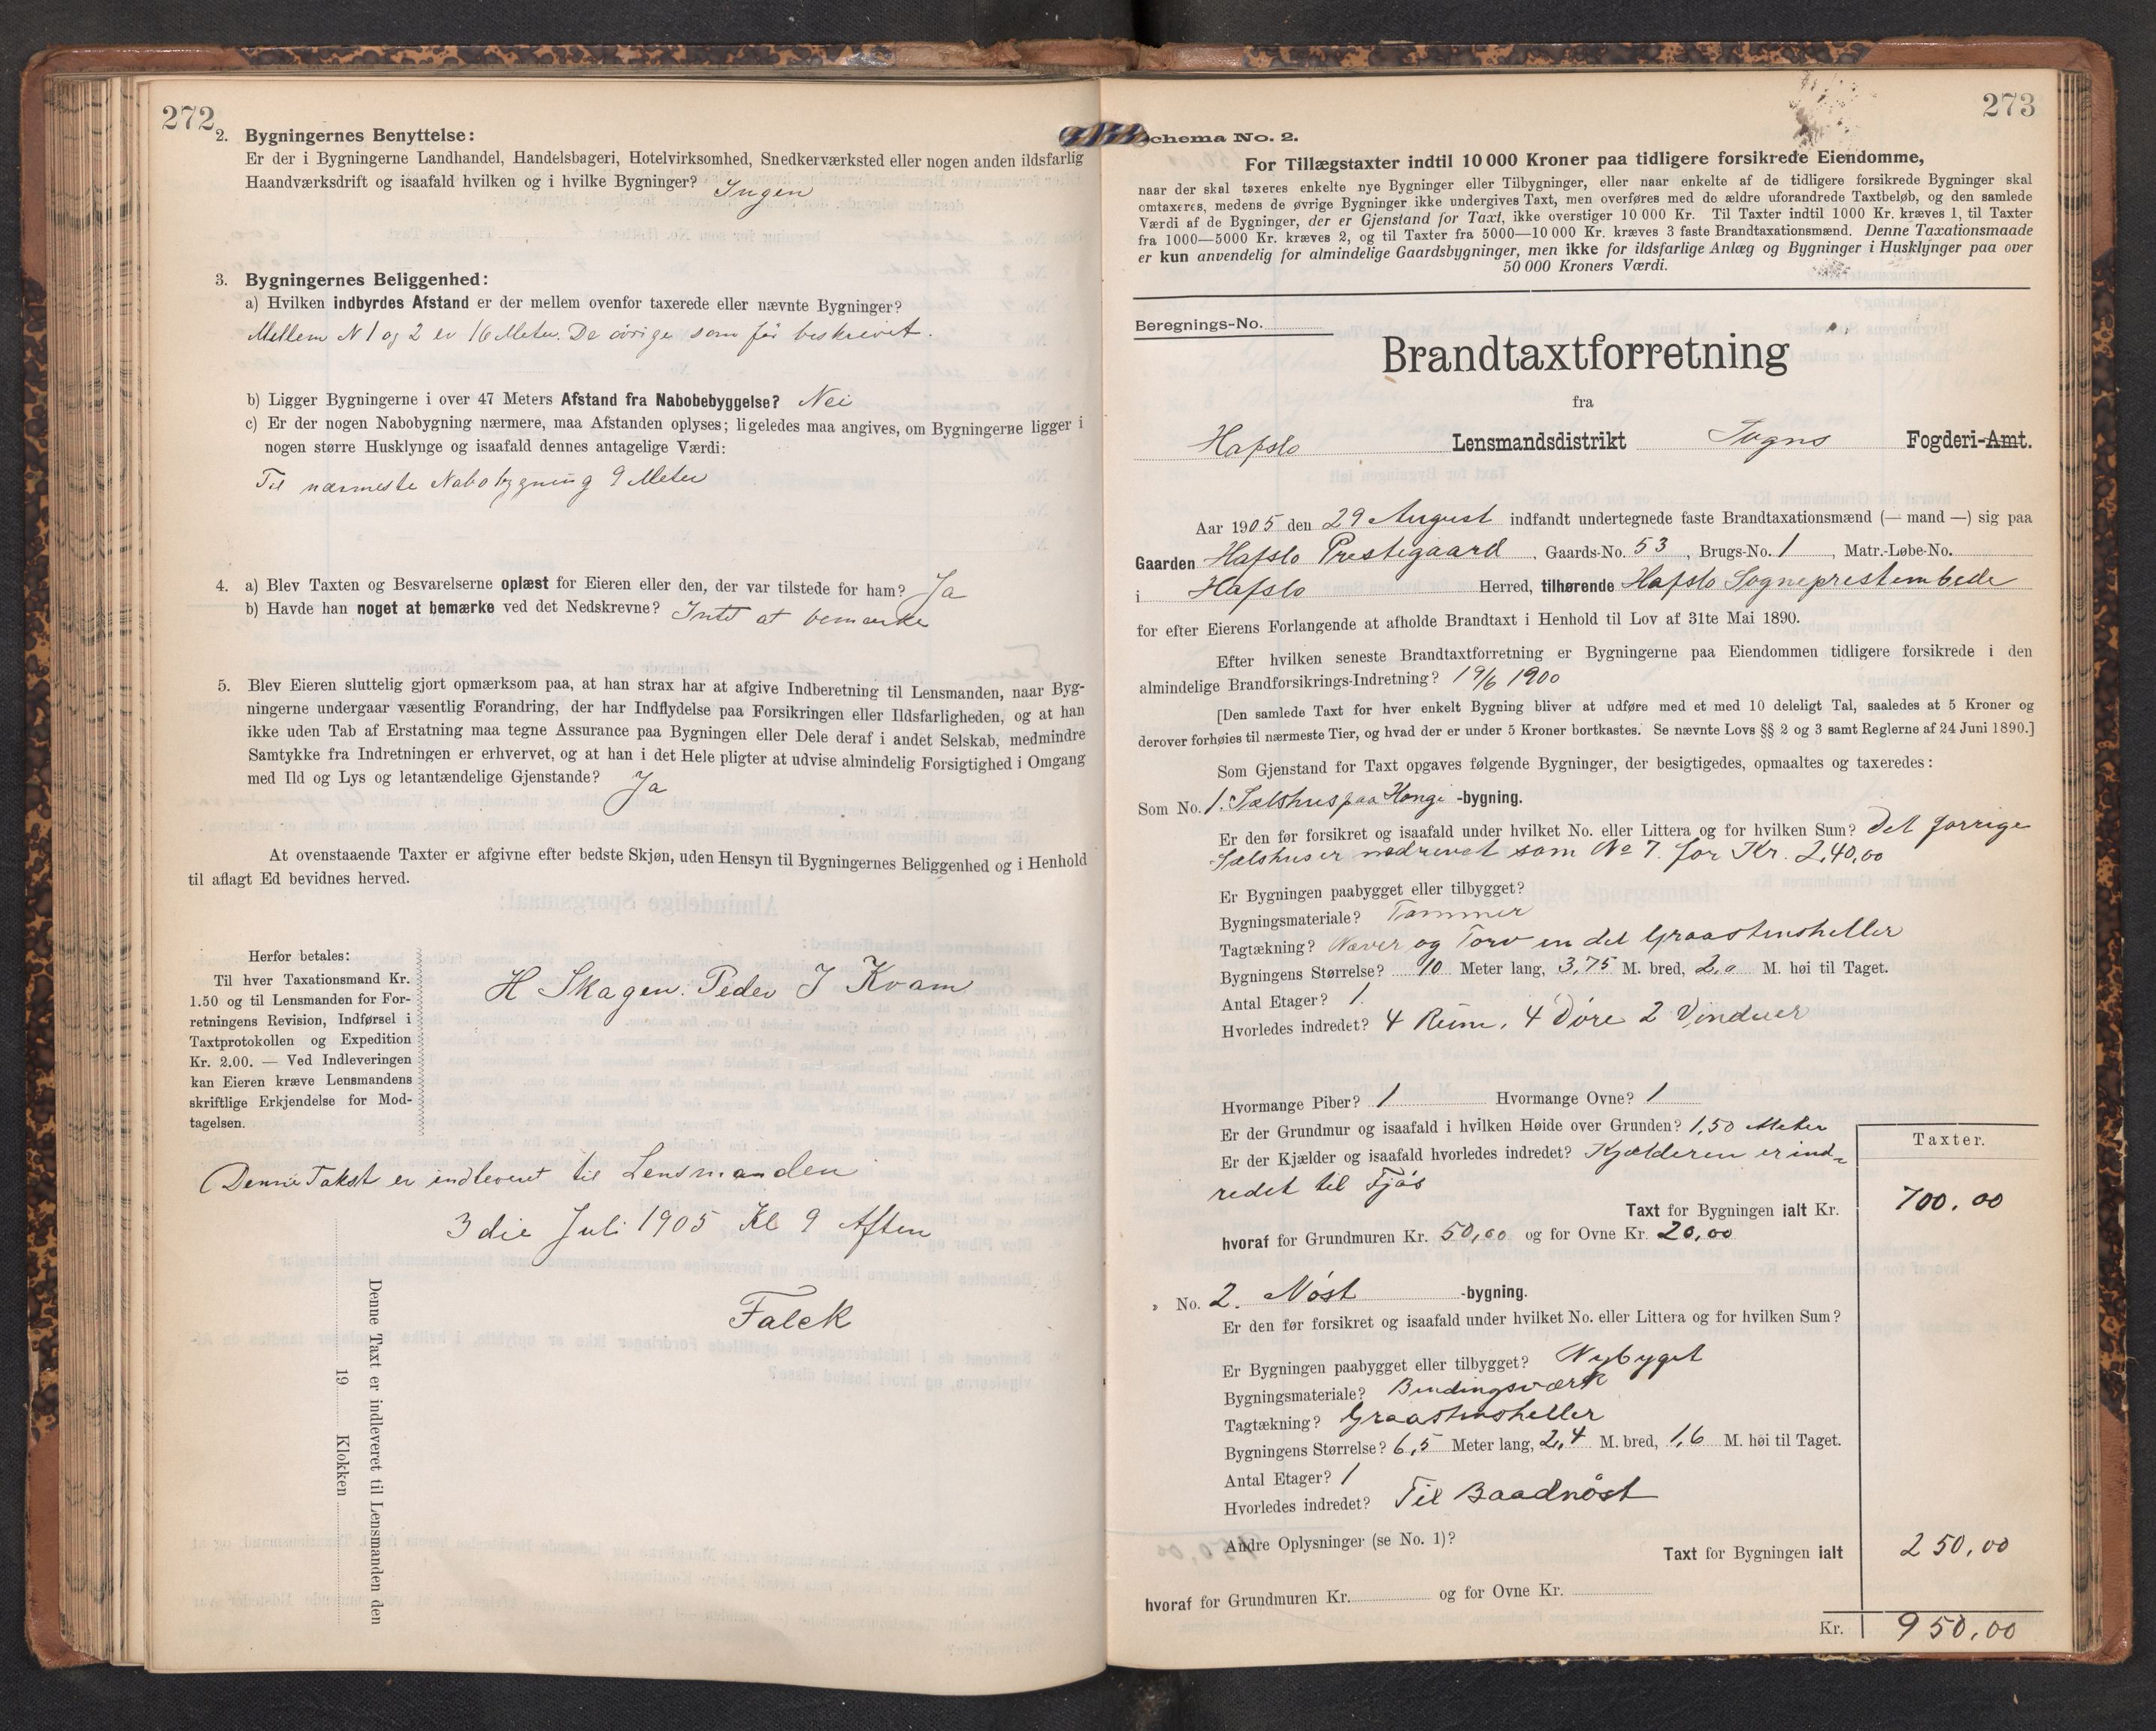 272
2. Bygningernes Benyttelse:
Er der i Bygningerne Landhandel, Handelsbageri, Hotelvirksomhed, Snedkerværksted eller nogen anden ildsfarlig
Haandværksdrift og isaafald hvilken og i hvilke Bygninger? Ingen
3. Bygningernes Beliggenhed:
a) Hvilken indbyrdes Afstand er der mellem ovenfor taxerede eller nævnte Bygninger?
Mellem N 1 og 2 er 16 Meter. De øvrige som før beskrevet.
b) Ligger Bygningerne i over 47 Meters Afstand fra Nabobebyggelse? Nei
c) Er der nogen Nabobygning nærmere, maa Afstanden oplyses; ligeledes maa angives, om Bygningerne ligger i
nogen større Husklynge og isaafald dennes antagelige Værdi:
Til nærmeste Nabobygning 9 Meter
4. a) Blev Taxten og Besvarelserne oplæst for Eieren eller den, der var tilstede for ham? Ja
b) Havde han noget at bemærke ved det Nedskrevne? Intet at bemærke
5. Blev Eieren sluttelig gjort opmærksom paa, at han strax har at afgive Indberetning til Lensmanden, naar Byg-
ningerne undergaar væsentlig Forandring, der har Indflydelse paa Forsikringen eller Ildsfarligheden, og at han
ikke uden Tab af Erstatning maa tegne Assurance paa Bygningen eller Dele deraf i andet Selskab, medmindre
Samtykke fra Indretningen er erhvervet, og at han i det Hele pligter at udvise almindelig Forsigtighed i Omgang
med Ild og Lys og letantændelige Gjenstande? Ja
At ovenstaaende Taxter er afgivne efter bedste Skjøn, uden Hensyn til Bygningernes Beliggenhed og i Henhold
til aflagt Ed bevidnes herved.
Herfor betales:
Til hver Taxationsmand Kr.
1.50 og til Lensmanden for For-
retningens Revision, Indførsel i
Taxtprotokollen og Expedition
Kr. 2.00. — Ved Indleveringen
kan Eieren kræve Lensmandens
skriftlige Erkjendelse for Mod-
tagelsen.
H Skagen. Peder J Kvam
Denne Takst er indleveret til Lensmanden
3die Juli 1905 Kl 9 Aften
Falck
Denne Taxt er indleveret til Lensmanden den
19 Klokken
273
Schema No. 2.
For Tillægstaxter indtil 10 000 Kroner paa tidligere forsikrede Eiendomme,
naar der skal taxeres enkelte nye Bygninger eller Tilbygninger, eller naar enkelte af de tidligere forsikrede Bygninger skal
omtaxeres, medens de øvrige Bygninger ikke undergives Taxt, men overføres med de ældre uforandrede Taxtbeløb, og den samlede
Værdi af de Bygninger, der er Gjenstand for Taxt, ikke overstiger 10 000 Kr. Til Taxter indtil 1000 Kr. kræves 1, til Taxter
fra 1000—5000 Kr. kræves 2, og til Taxter fra 5000—10 000 Kr. kræves 3 faste Brandtaxationsmænd. Denne Taxationsmaade
er kun anvendelig for almindelige Gaardsbygninger, men ikke for ildsfarlige Anlæg og Bygninger i Husklynger paa over
50 000 Kroners Værdi.
Beregnings-No.
Brandtaxtforretning
fra
Hafslo Lensmandsdistrikt Sogns Fogderi-Amt.
Aar 1905 den 29 August indfandt undertegnede faste Brandtaxationsmænd (— mand —) sig paa
Gaarden Hafslo Prestegaard, Gaards-No. 53, Brugs-No. 1, Matr.-Løbe-No.
i Hafslo Herred, tilhørende Hafslo Sogneprestembede
for efter Eierens Forlangende at afholde Brandtaxt i Henhold til Lov af 31te Mai 1890.
Efter hvilken seneste Brandtaxtforretning er Bygningerne paa Eiendommen tidligere forsikrede i den
almindelige Brandforsikrings-Indretning? 19/6 1900
[Den samlede Taxt for hver enkelt Bygning bliver at udføre med et med 10 deleligt Tal, saaledes at 5 Kroner og
derover forhøies til nærmeste Tier, og hvad der er under 5 Kroner bortkastes. Se nævnte Lovs §§ 2 og 3 samt Reglerne af 24 Juni 1890.]
Som Gjenstand for Taxt opgaves følgende Bygninger, der besigtigedes, opmaaltes og taxeredes:
Som No. 1. Sælshus paa -bygning.
Er den før forsikret og isaafald under hvilket No. eller Littera og for hvilken Sum? Det forrige
Sælshus er nedrevet som No 7. for Kr. 240,00
Er Bygningen paabygget eller tilbygget?
Bygningsmateriale? Tømmer
Tagtækning? Næver og Torv en del Graastensheller
Bygningens Størrelse? 10 Meter lang, 3,75 M. bred, 2,0 M. høi til Taget.
Antal Etager? 1.
Hvorledes indredet? 4 Rum, 4 Døre 2 Vinduer
Hvormange Piber? 1 Hvormange Ovne? 1
Er der Grundmur og isaafald i hvilken Høide over Grunden? 1,50 Meter
Er der Kjælder og isaafald hvorledes indredet? Kjælderen er ind-
redet til Fjøs
Taxter.
Taxt for Bygningen ialt Kr. 700,00
hvoraf for Grundmuren Kr. 50,00 og for Ovne Kr. 20,00
" No. 2. Nøst -bygning.
Er den før forsikret og isaafald under hvilket No. eller Littera og for hvilken Sum?
Er Bygningen paabygget eller tilbygget? Nybyget
Bygningsmateriale? Bindingsværk
Tagtækning? Graastensheller
Bygningens Størrelse? 6,5 Meter lang, 2,4 M. bred, 1,6 M. høi til Taget.
Antal Etager? 1
Hvorledes indredet? Til Baadnøst
Andre Oplysninger (se No. 1)?
Taxt for Bygningen ialt 250,00
hvoraf for Grundmuren Kr. og for Ovne Kr.
Kr. 950,00